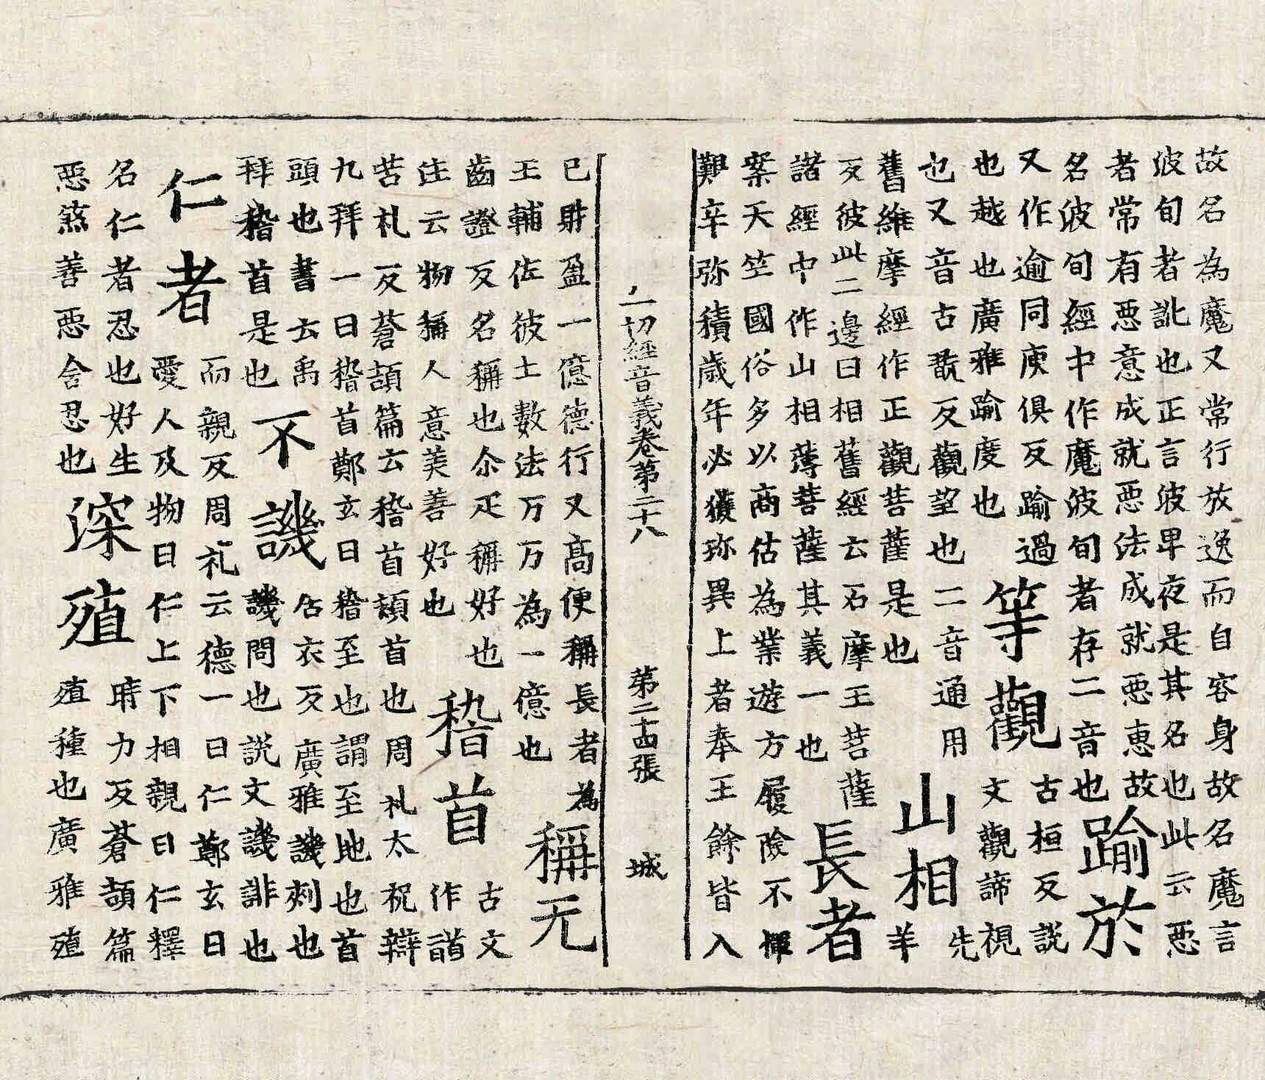 故名為魔又常行放逸而自容身故名魔言
波旬者訛也正言波卑夜是其名也此云惡
者常有惡意成就惡法成就惡恵故
名波旬經中作魔波旬者存二音也
踰於
又作逾同庾俱反踰過
也越也廣雅踰度也
等觀
古桓反說
文觀諦視
也又音古翫反觀望也二音通用
舊維摩經作正觀菩薩是也
山相
先
羊
反彼此二邊曰相舊經云石摩王菩薩
諸經中作山相薄菩薩其義一也
長者
案天竺國俗多以商估為業遊方履險不憚
艱辛弥積歲年必獲珎異上者奉王餘皆入
一切經音義卷第二十八 第二十四張 城
已財盈一億德行又高便稱長者為
王輔佐彼土數法万万為一億也
稱无
齒證反名稱也尒疋稱好也
注云物稱人意美善好也
稽首
古文
作䭫
苦礼反蒼頡篇云稽首頓首也周礼太祝辯
九拜一曰稽首鄭玄曰稽至也謂至地也首
頭也書云禹
拜稽首是也
不譏
居衣反廣雅譏刾也
譏問也説文譏誹也
仁者
而親反周礼云德一曰仁鄭玄曰
愛人及物曰仁上下相親曰仁釋
名仁者忍也好生
惡煞善惡含忍也
深殖
時力反蒼頡篇
殖種也廣雅殖